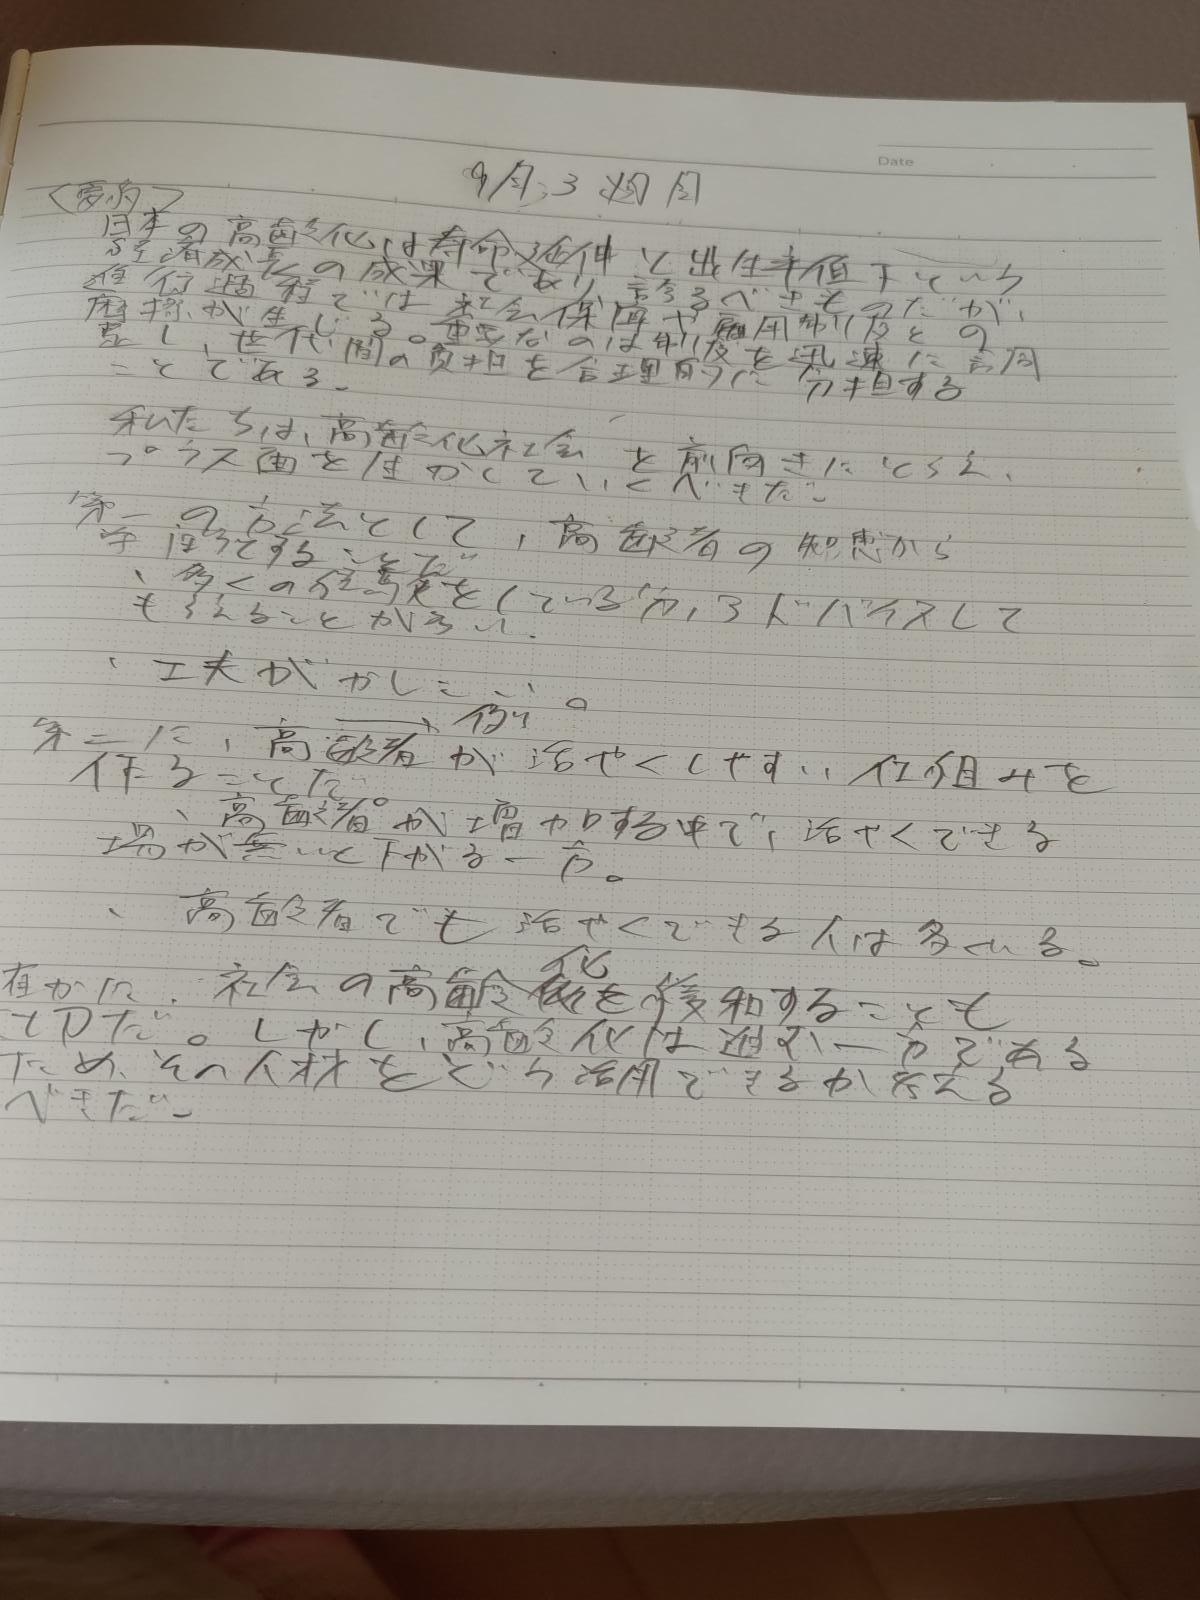 Date
9月、3週間
<要約>
日本の高齢化は寿命延伸と出生率低下という
経済成長の成果であり、誇るべきものだが、
進行過程では社会保障や雇用制度との
摩擦が生じる。重要なのは制度を迅速に
し、世代間の負担を合理的に分担する
ことである。
私たちは、高齢化社会を前向きにとらえ、
プラス面を生かしていくべきだ。
第一の方法として、高齢者の知恵から
ことだ
、多くの経験をしている分、アドバイスして
もらえることが多い。
、工夫がかしこい。
→例
第二に、高齢者が活やくしやすい仕組みを
作ることだ。
、高齢者が増加する中で、活やくできる
場が無いと下がる一方。
、高齢者でも活やくできる人は多くいる。
確かに、社会の高齢化を緩和することも
大切だ。しかし、高齢化は進む一方である
ため、その人材をどう活用できるか考える
べきだ。